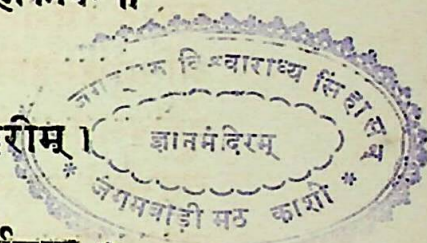 रीम् ।
जगद्गुरु विश्वाराध्य सिंहासन
ज्ञानमंदिरम्
* जंगमवाडी मठ काशी *